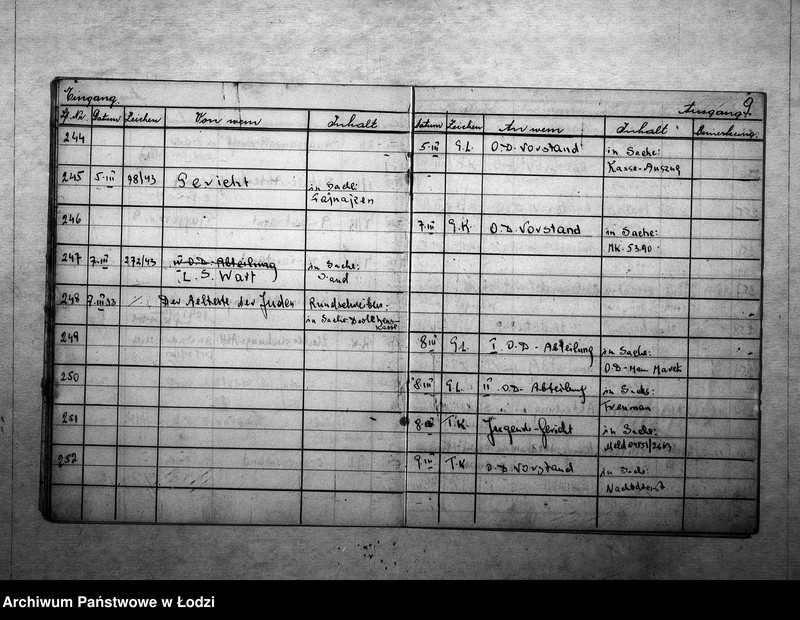 Eingang.
9.
Ausgang.
Lf. Nr. Datum Zeichen Von wem Inhalt Datum Zeichen An wem Inhalt Bemerkung.
244 5·III G.L. O.D. Vorstand in Sache:
Kasse-Auszug
245 5·III 98/43 Gericht in Sache:
246 7·III G.K. O.D. Vorstand in Sache:
MK. 53.90.
247 7·III 272/43 O.D. Abteilung in Sache:
L. S. Wart
248 7·III Der Aelteste der Juden Rundschreiben.
in Sache:
Kasse
249 8·III G.L. I. O.D - Abteilung in Sache:
O.D-Man
250 8·III G.L. II. O.D. Abteilung in Sache:
251 8·III T.K. Jugend-Gericht in Sache:
252 9·III T.K. O.D. Vorstand in Sache:
Nachtdienst
Archiwum Państwowe w Łodzi